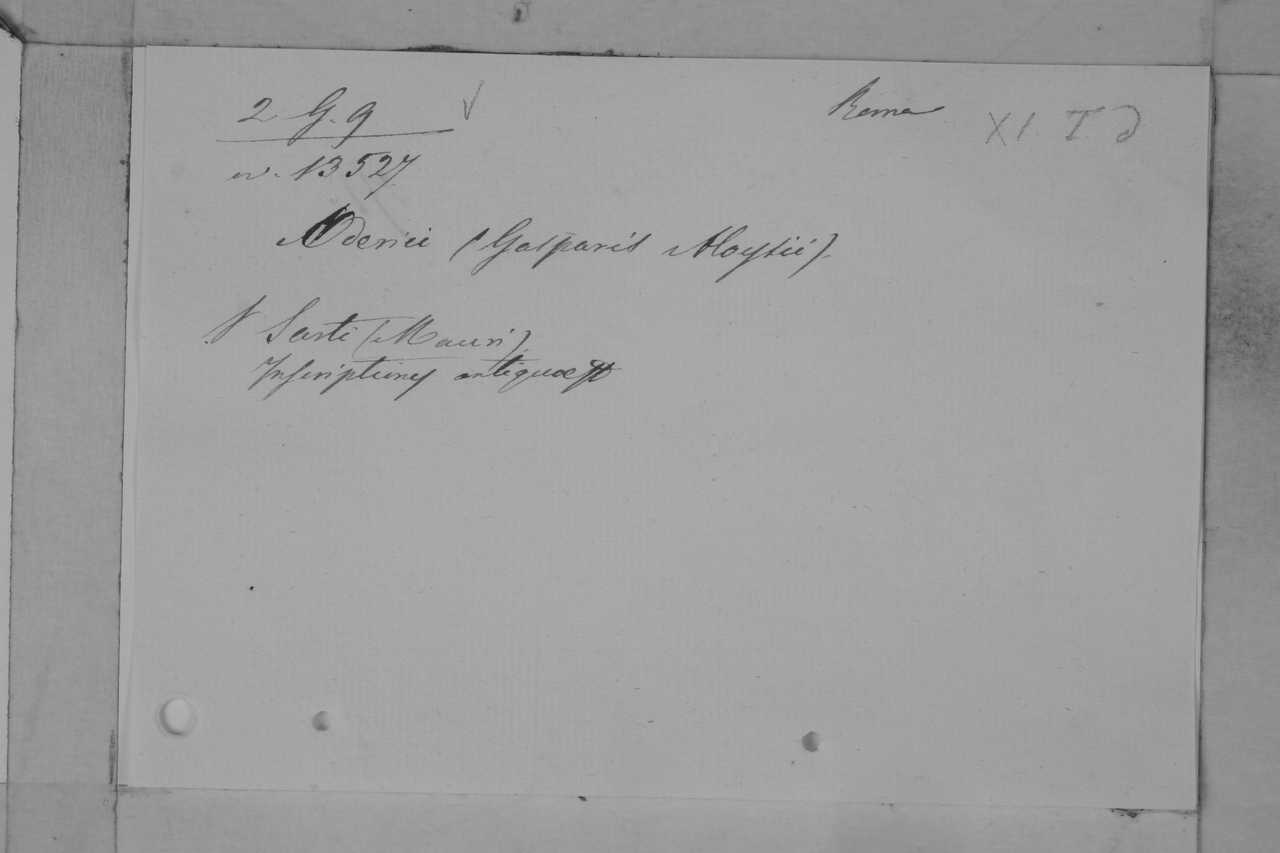 2 G. 9 Roma XI I d
nr. 13527
Oderici (Gasparis Aloysii).
V Sarti (Mauri)
Inscriptiones antiquae